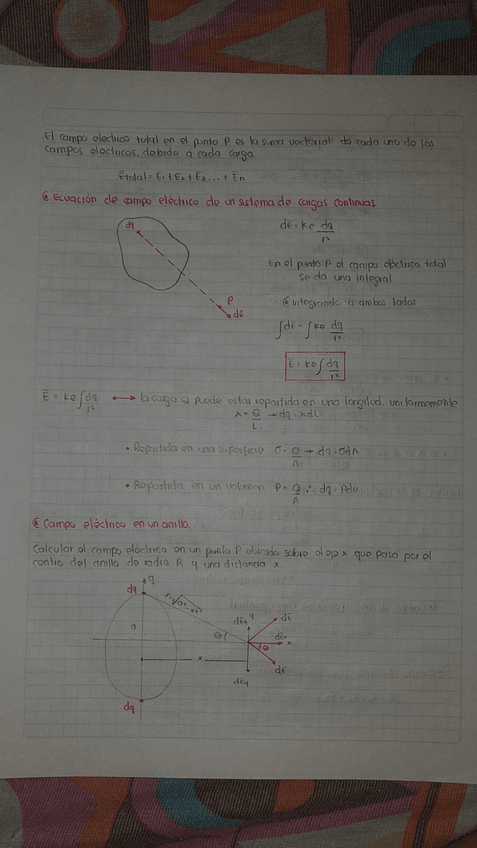 El campo electrico total en el punto P es la suma vectorial de cada uno de los
campos electricos, debido a cada carga.
Etotal = E₁ + E₂ + E₃ ... + En
Ecuación de campo eléctrico de un sistema de cargas continuas
dq
dE = Ke dq/r²
En el punto P el campo eléctrico total
se da una integral
P
dE
Integrando a ambos lados
∫dE = ∫Ke dq/r²
E = Ke∫dq/r²
E = Ke∫dq/r² ↔ la carga Q puede estar repartida en una longitud, uniformemente
λ = Q/L → dq = λdL
• Repartida en una superficie σ = Q/A → dq = σdA
• Repartida en un volumen ρ = Q/A ∴ dq = ρdv
Campo eléctrico en un anillo.
Calcular el campo eléctrico en un punto P ubicado sobre el eje x que pasa por el
centro del anillo de radio R y una distancia x
dq
a
θ
x
dEy
dE
x
θ
dE
dEy
dq